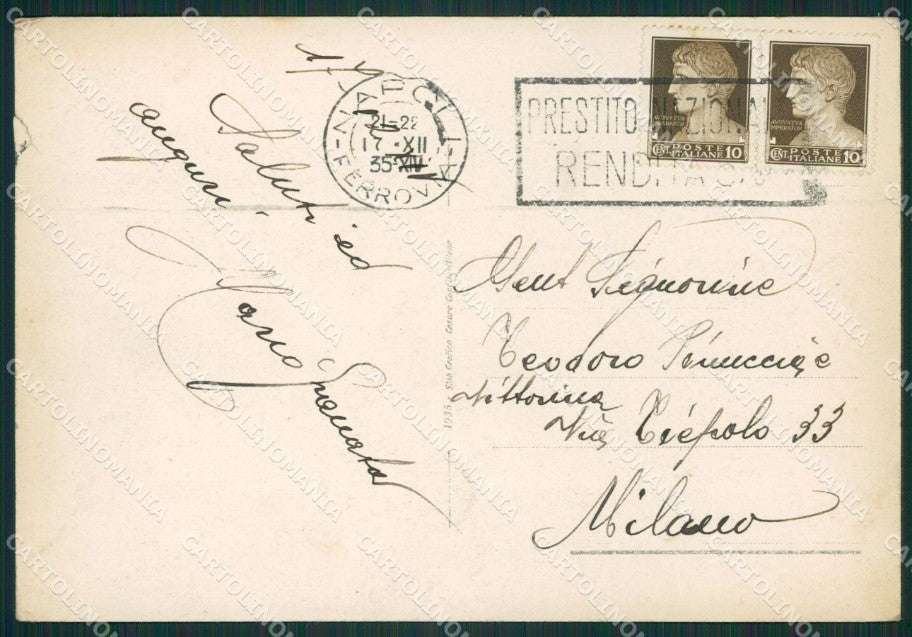 NAPOLI
21-22
17·XII
35·XIV
FERROVIA
PRESTITO NAZIONAL
RENDITA 5%
AVGVSTVS
IMPERATOR
POSTE
CENT. ITALIANE 10
AVGVSTVS
IMPERATOR
POSTE
CENT. ITALIANE 10
Saluti ed
auguri.
Mario
1935 Stab Grafico Cesare
Gent Signorine
Teodoro Pinuccia e
Vittorina
Via Tiepolo 33
Milano
CARTOLINOMANIA